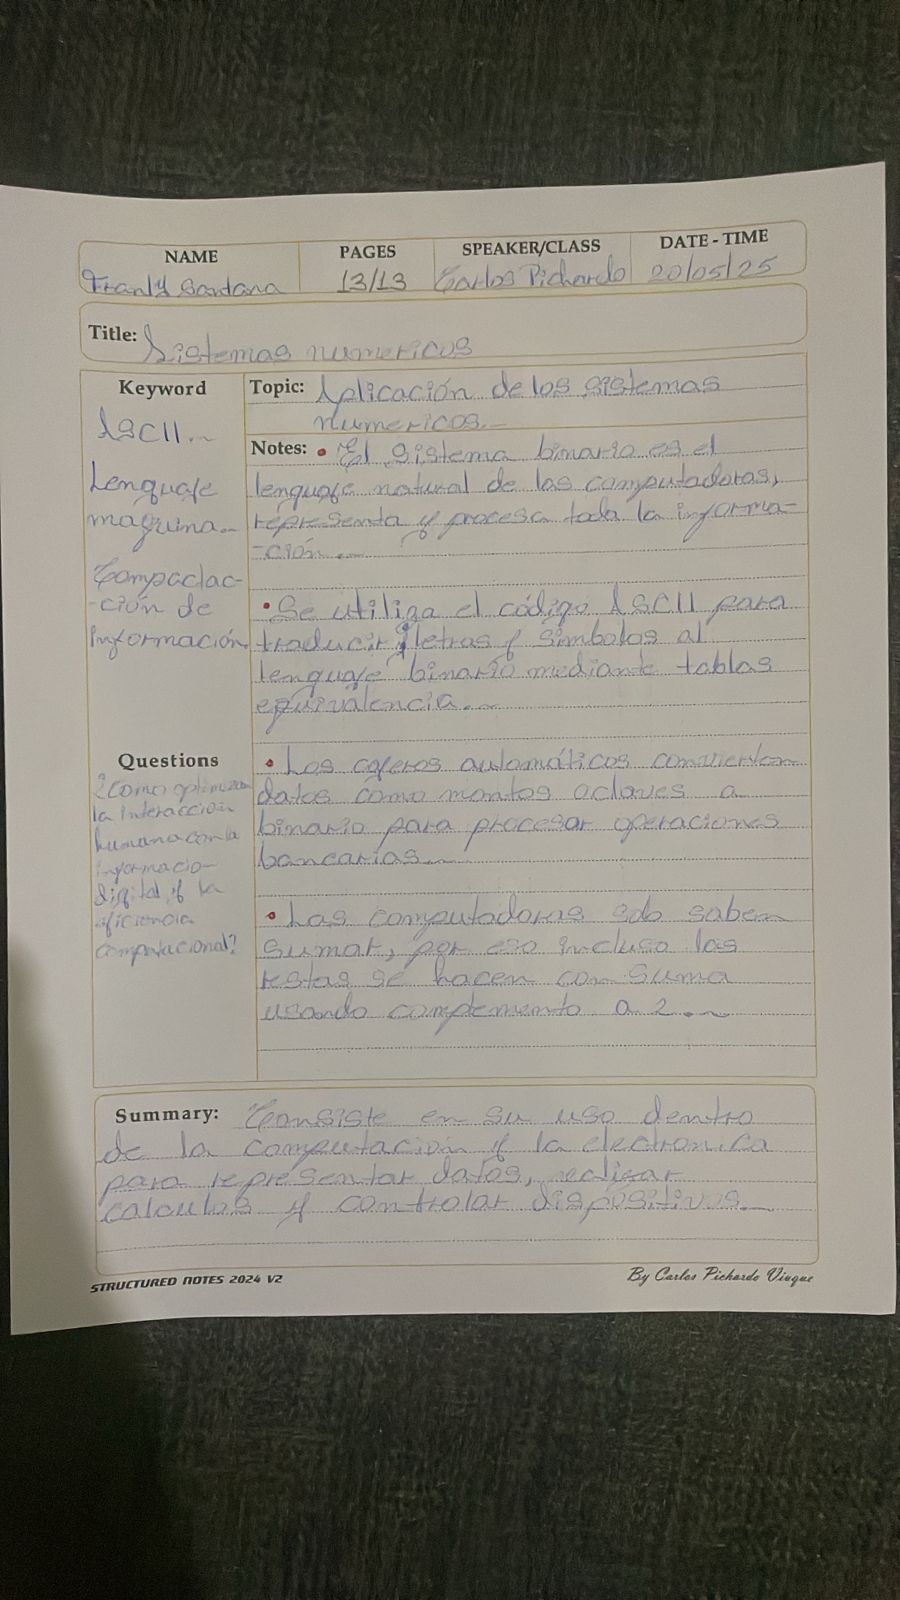 NAME PAGES SPEAKER/CLASS DATE - TIME
Franly Santana 13/13 Carlos Pichardo 20/05/25
Title: Sistemas numericos
Keyword
ASCII.
Lenguaje
maquina.
Compactac-
-ción de
información.
Questions
¿Como optimizan
la interacción
humana con la
informacion
digital y la
eficiencia
computacional?
Topic: Aplicación de los sistemas
numericos.
Notes: • El sistema binario es el
lenguaje natural de las computadoras,
representa y procesa toda la informa-
-ción.
• Se utiliza el código ASCII para
traducir letras y simbolos al
lenguaje binario mediante tablas
equivalencia.
• Los cajeros automáticos convierten
datos como montos o claves a
binario para procesar operaciones
bancarias.
• Las computadoras solo saben
sumar, por eso incluso las
restas se hacen con suma
usando complemento a 2.
Summary: Consiste en su uso dentro
de la computación y la electronica
para representar datos, realizar
calculos y controlar dispositivos.
STRUCTURED NOTES 2024 V2 By Carlos Pichardo Viuque